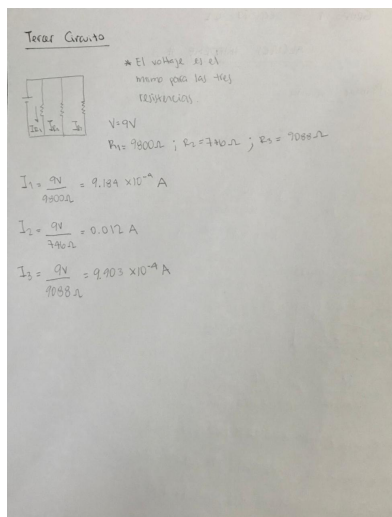 Tercer Circuito
* El voltaje es el
mismo para las tres
resistencias.
V=9V
R₁= 9800Ω ; R₂= 746Ω ; R₃= 9088Ω
I₁= 9V/9800Ω = 9.184 x10⁻⁴ A
I₂= 9V/746Ω = 0.012 A
I₃= 9V/9088Ω = 9.903 x10⁻⁴ A